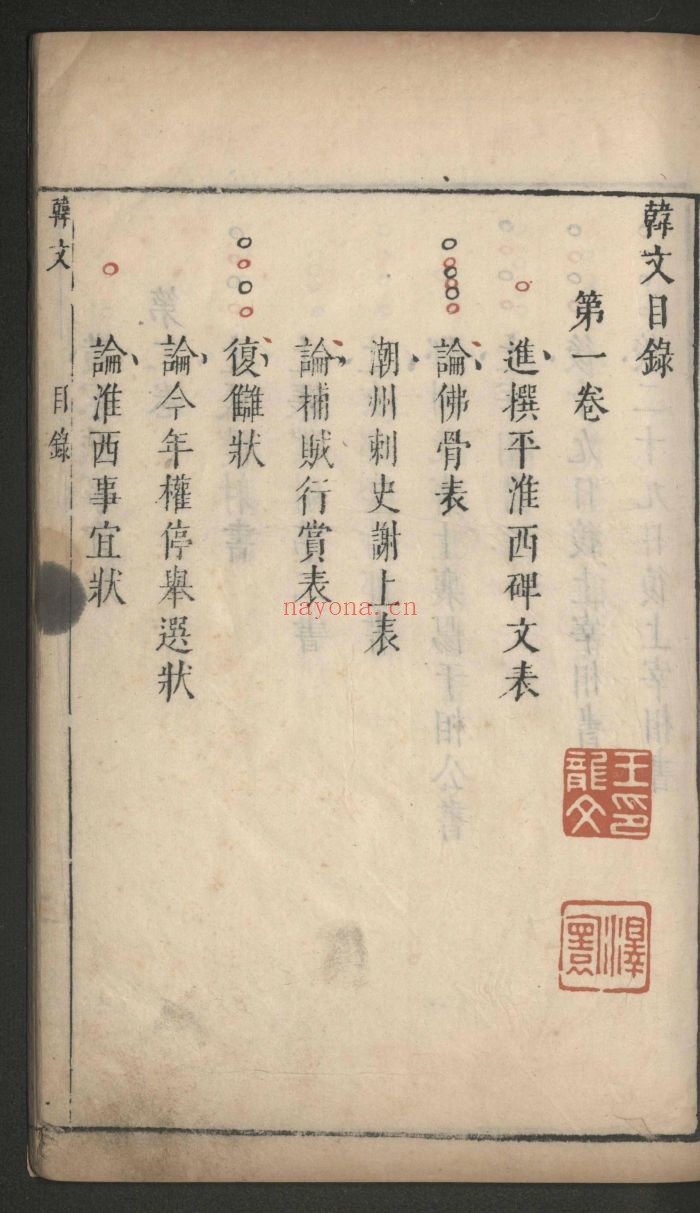 韓文目錄
第一卷
進撰平淮西碑文表
論佛骨表
潮州刺史謝上表
論捕賊行賞表
復讎狀
論今年權停舉選狀
論淮西事宜狀
韓文 目錄
王印龍文
澤
nayona.cn